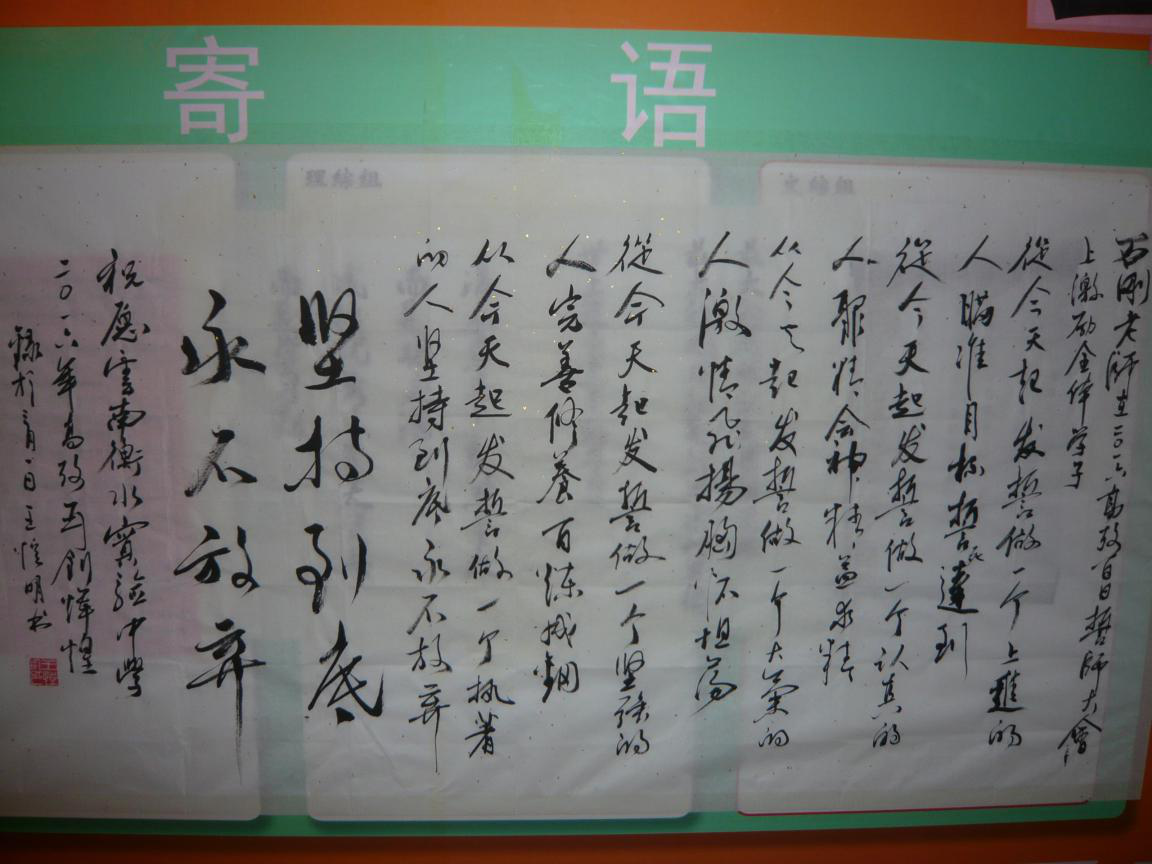 寄语
理综组
文综组
石刚老师在二〇一六高效百日誓师大會
上激励全体学子
從今天起发誓做一个上進的
人瞄准目标誓达到
從今天起发誓做一个认真的
人聚精会神精益求精
从今天起发誓做一个大氣的
人激情飛揚胸怀坦荡
從今天起发誓做一个坚强的
人完善修養百炼成钢
从今天起发誓做一个执著
的人坚持到底永不放弃
坚持到底
永不放弃
祝愿雲南衡水实验中學
二〇一六年高效再创輝煌
录於三月一日王 明书